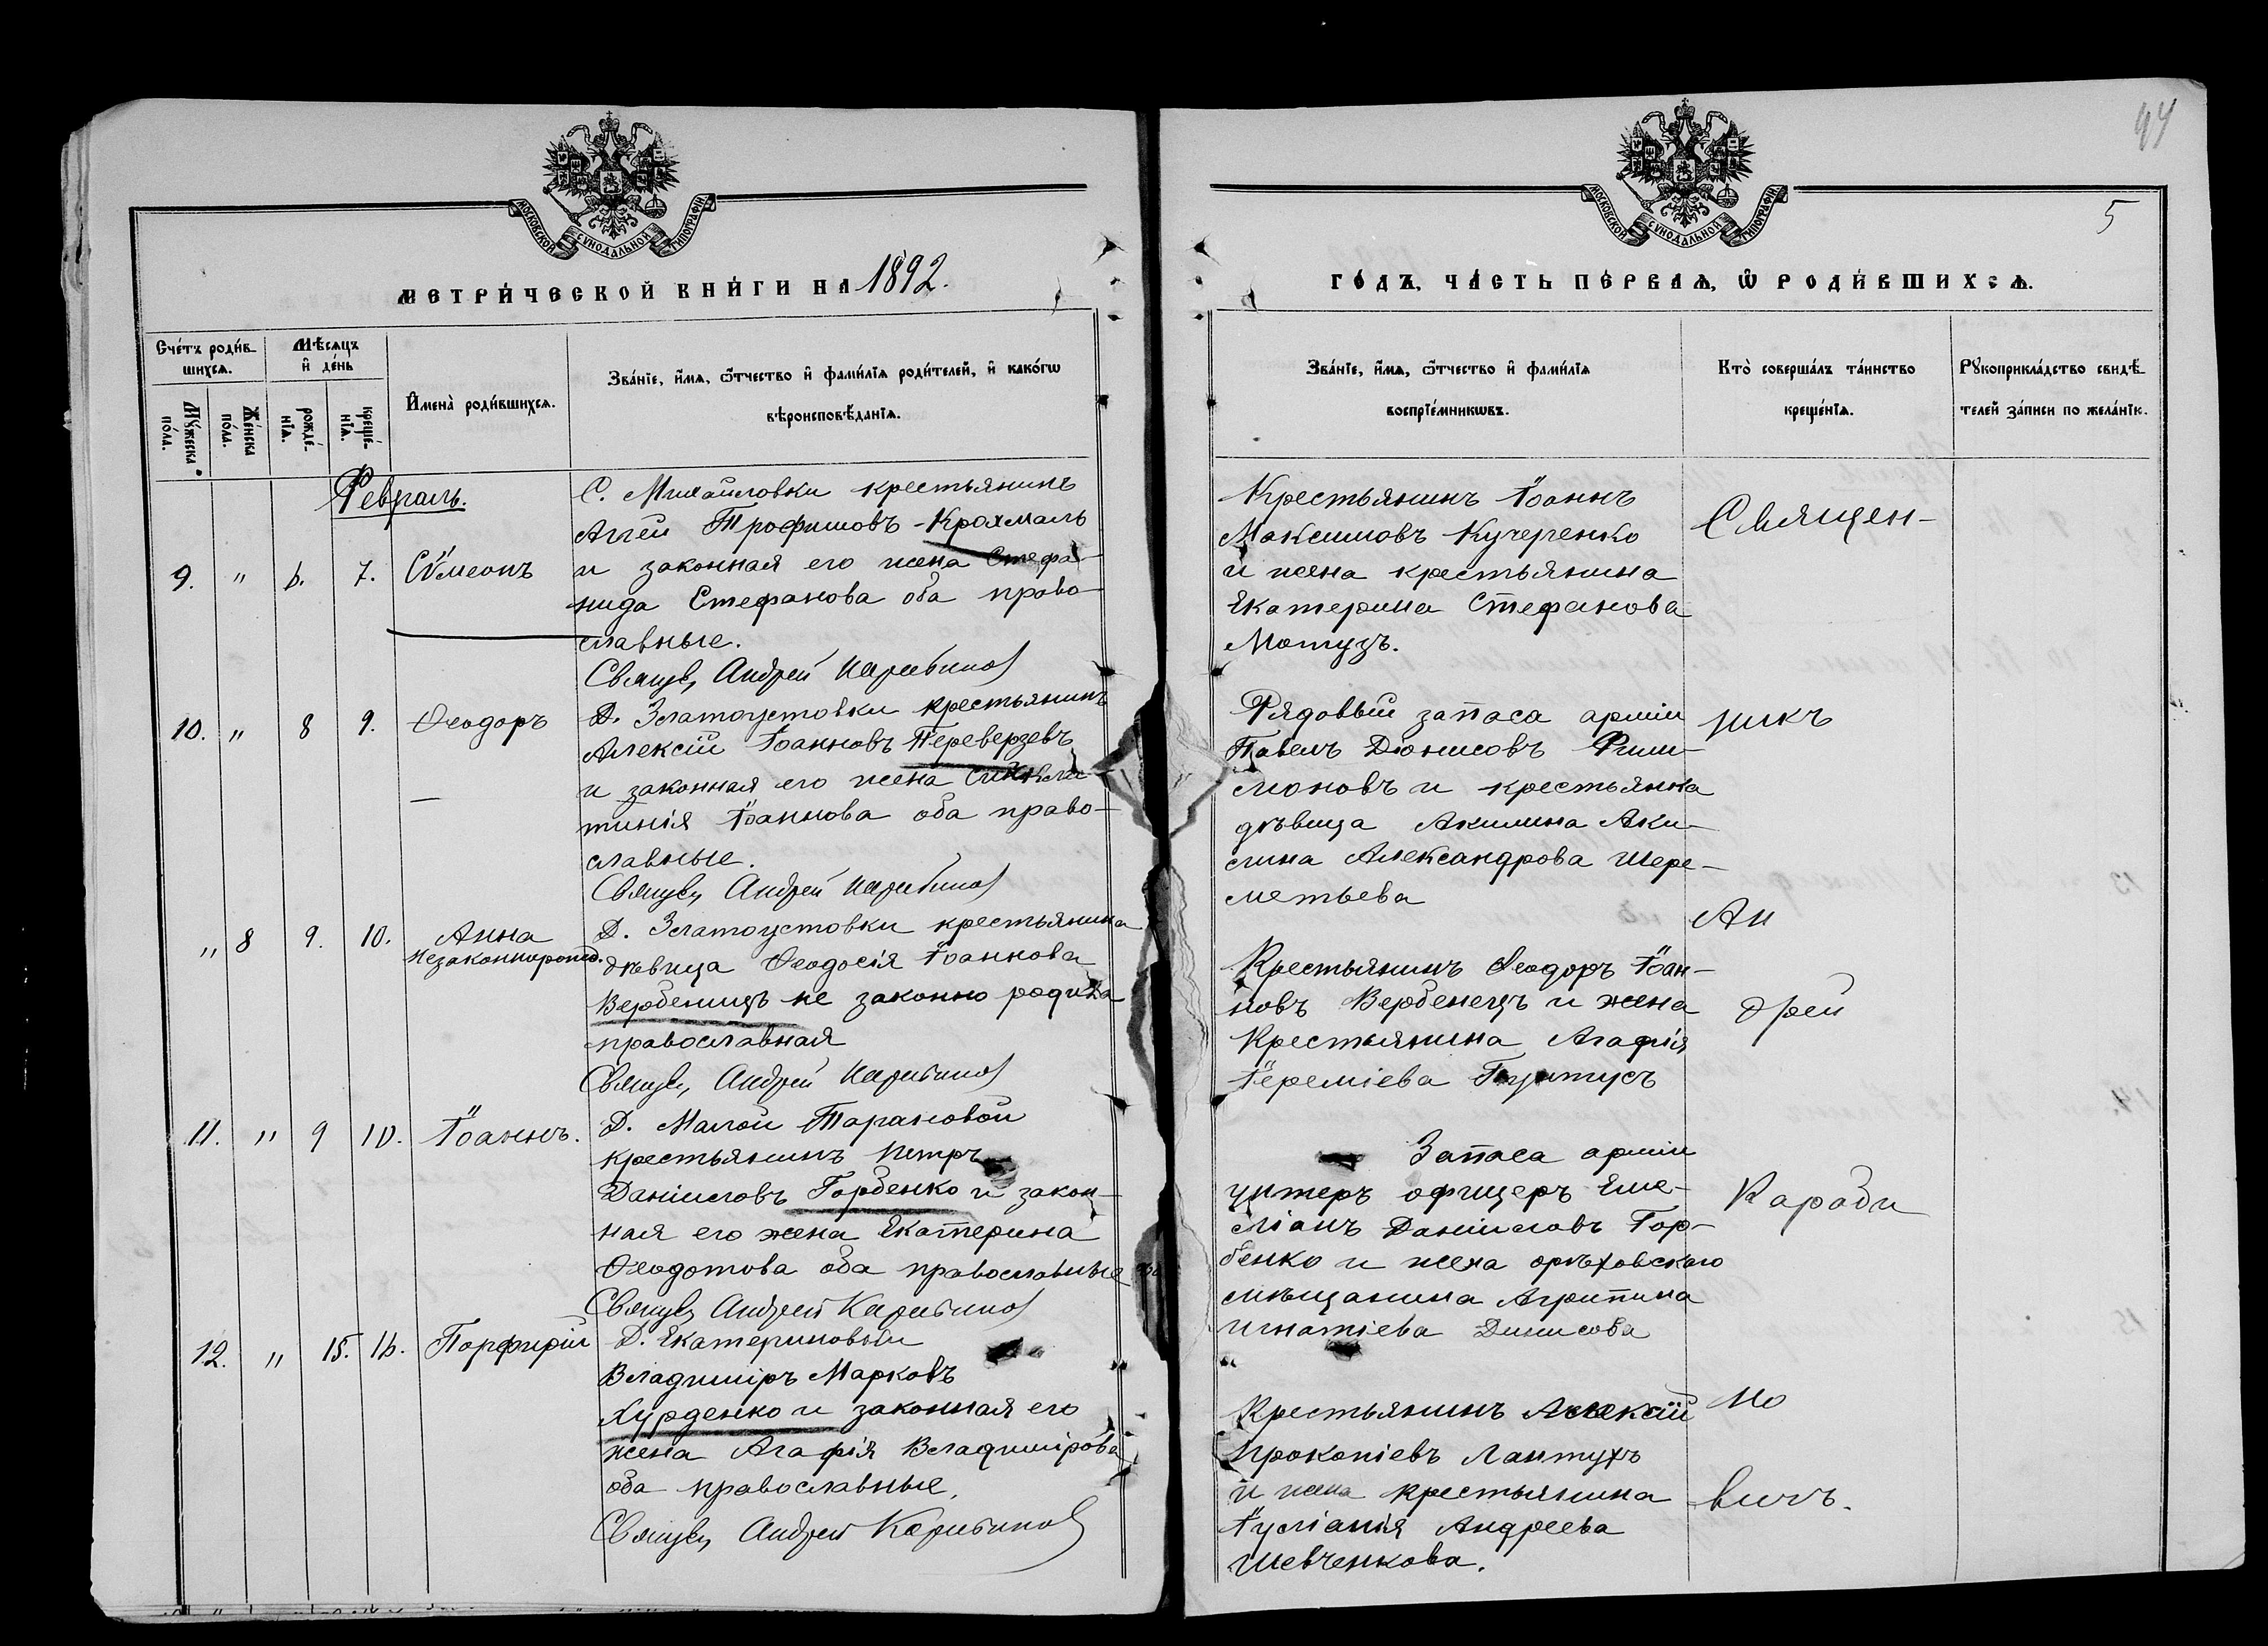 94
5
МОСКОВСКОЙ СѴНОДАЛЬНОЙ ТИПОГРАФІИ
МОСКОВСКОЙ СѴНОДАЛЬНОЙ ТИПОГРАФІИ
МЕТРИ́ЧЕСКОЙ КНИ́ГИ НА 1892.
ГО́ДЪ, ЧА́СТЬ ПЕ́РВАѦ, Ѡ҆ РОДИ́ВШИХСѦ.
Сче́тъ роди́в-
шихсѧ.
Мѣ́сѧцъ
и҆ де́нь
Мꙋ́жеска
по́ла.
Же́нска
по́ла.
рожде́-
нїѧ.
креще́-
нїѧ.
И҆мена̀ роди́вшихсѧ.
Зва́нїе, и҆́мѧ, ѻ҆́тчество и҆ фами́лїѧ роди́телей, и҆ како́гѡ
вѣроисповѣ́данїѧ.
Зва́нїе, и҆́мѧ, ѻ҆́тчество и҆ фами́лїѧ
воспрїе́мникѡвъ.
Кто̀ соверша́лъ та́инство
креще́нїѧ.
Рꙋкоприкла́дство свидѣ́-
телей за́писи по жела́нїю.
Февраль.
9. " 6. 7. Сѵмеонъ
С. Михайловки крестьянинъ
Аггей Трофимовъ Крохмаль
и законная его жена Стефа-
нида Стефанова оба право-
славные.
Священ. Андрей Карабинов
Крестьянинъ Іоаннъ
Максимовъ Кучеренко
и жена крестьянина
Екатерина Стефанова
Мотузъ.
10. " 8 9. Ѳеодоръ
Д. Златоустовки крестьянинъ
Алексій Іоанновъ Переверзевъ
и законная его жена Синкли-
тинія Іоаннова оба право-
славные.
Священ. Андрей Карабинов
Рядовый запаса арміи
Павелъ Діонисовъ Фили-
моновъ и крестьянка
дѣвица Акилина Аки-
лина Александрова Шере-
метьева
" 8 9. 10. Анна
незаконнорожд.
Д. Златоустовки крестьянина
дѣвица Ѳеодосія Іоаннова
Вербенецъ не законно родила
православная
Священ. Андрей Карабинов
Крестьянинъ Ѳеодоръ Іоан-
новъ Вербенецъ и жена
Крестьянина Агафія
Іереміева
11. " 9 10. Іоаннъ.
Д. Малой Тарановой
крестьянинъ Петръ
Даніиловъ Горбенко и закон-
ная его жена Екатерина
Ѳеодотова оба православные
Священ. Андрей Карабинов
Запаса арміи
унтеръ офицеръ Еме-
ліанъ Даніиловъ Гор-
бенко и жена орѣховскаго
мѣщанина Агрипина
Игнатіева Динисова
12. " 15. 16. Порфирій
Д. Екатериновки
Владиміръ Марковъ
Хурденко и законная его
жена Агафія Владимірова
оба православные.
Священ. Андрей Карабинов
Крестьянинъ Алексій
Прокопіевъ Лантухъ
и жена крестьянина
Іуліанія Андреева
Шевченкова.
Священ-
никъ
Ан
дрей
Караби
но
вичъ.